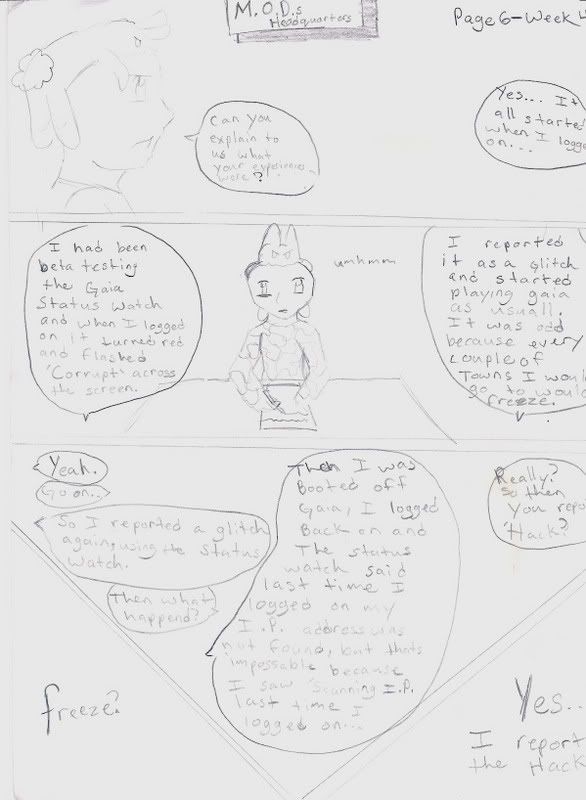 M.O.D.s
Headquarters
Page 6-Week
Can you
explain to
us what
your experiences
were?
Yes... It
all started
when I logge
on...
I had been
beta testing
the Gaia
Status Watch
and when I logged
on it turned red
and flashed
'Corrupt' across
the screen.
umhmm
I reported
it as a glitch
and started
playing gaia
as usuall.
It was odd
because every
couple of
Towns I woul
go to would
freeze.
Yeah.
Go on...
So I reported a glitch
again, using the Status
Watch.
Then what
happend?
Then I was
Booted off
Gaia, I logged
Back on and
The status
watch said
last time I
logged on my
I.P. address was
not found, but thats
impossable because
I saw 'Scanning I.P.
last time I
logged on...
Really?
So then
you repo
'Hack?
freeze?
Yes..
I report
the Hack